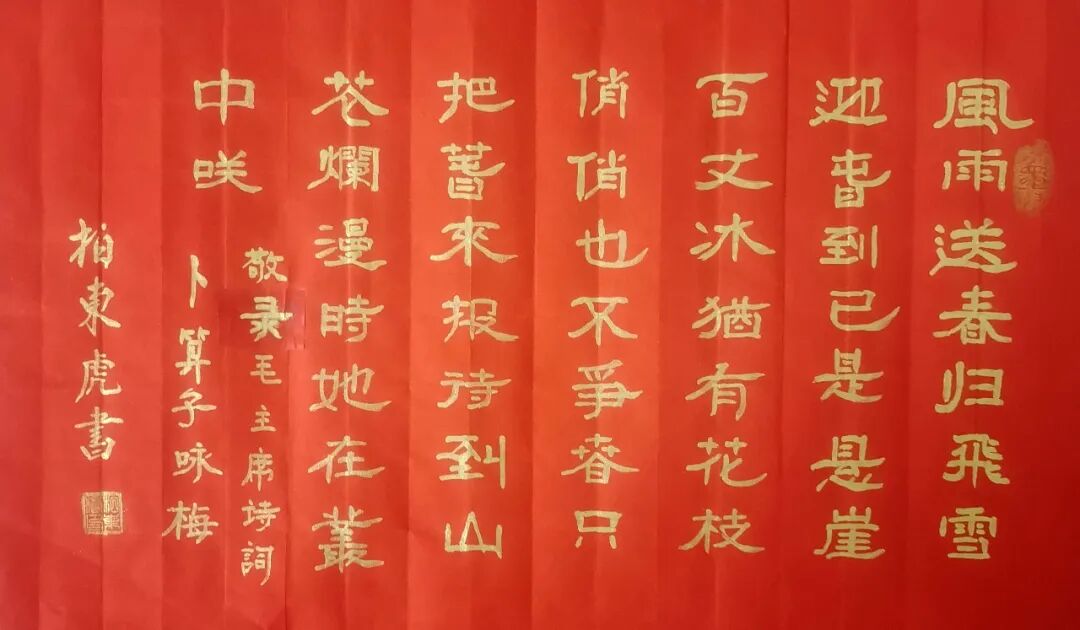 風雨送春归飛雪
迎旾到已是悬崖
百丈冰猶有花枝
俏俏也不爭春只
把萅來报待到山
花爛漫時她在叢
中咲
敬录毛主席诗詞
卜算子咏梅
柏東虎書